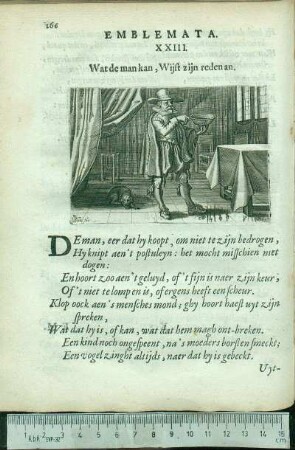 266
EMBLEMATA.
XXIII.
Wat de man kan, Wijst zijn reden an.
DE man, eer dat hy koopt, om niet te zijn bedrogen,
Hy knipt aen't postuleyn: het mocht misschien niet
dogen:
En hoort zoo aen't geluyd, of 't fijn is naer zijn keur,
Of 't niet te lomp en is, of ergens heeft een scheur.
Klop oock aen's mensches mond; ghy hoort haest uyt zijn
spreken,
Wat dat hy is, of kan, wat dat hem magh ont-breken.
Een kind noch ongespeent, na's moeders borsten smeeckt:
Een vogel zinght altijds, naer dat hy is gebeckt.
Uyt-
1 2 3 4 5 6 7 8 9 10 11 12 13 14 15
cm